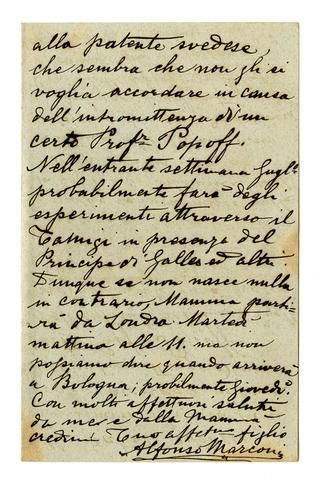 alla patente svedese,
che sembra che non gli si
voglia accordare in causa
dell'intromittenza di un
certo Profr. Popoff.
Nell'entrante settimana Gugl:
probabilmente farà degli
esperimenti attraverso il
Tamigi in presenza del
Principe di Galles ed altri.
Dunque se non nasce nulla
in contrario, Mamma parti-
rà da Londra Martedì
mattina alle 11. ma non
possiamo dire quando arriverà
a Bologna; probilmente Giovedì.
Con molti affettuosi saluti
da me e dalla Mamma
credimi Tuo affetmo figlio
Alfonso Marconi